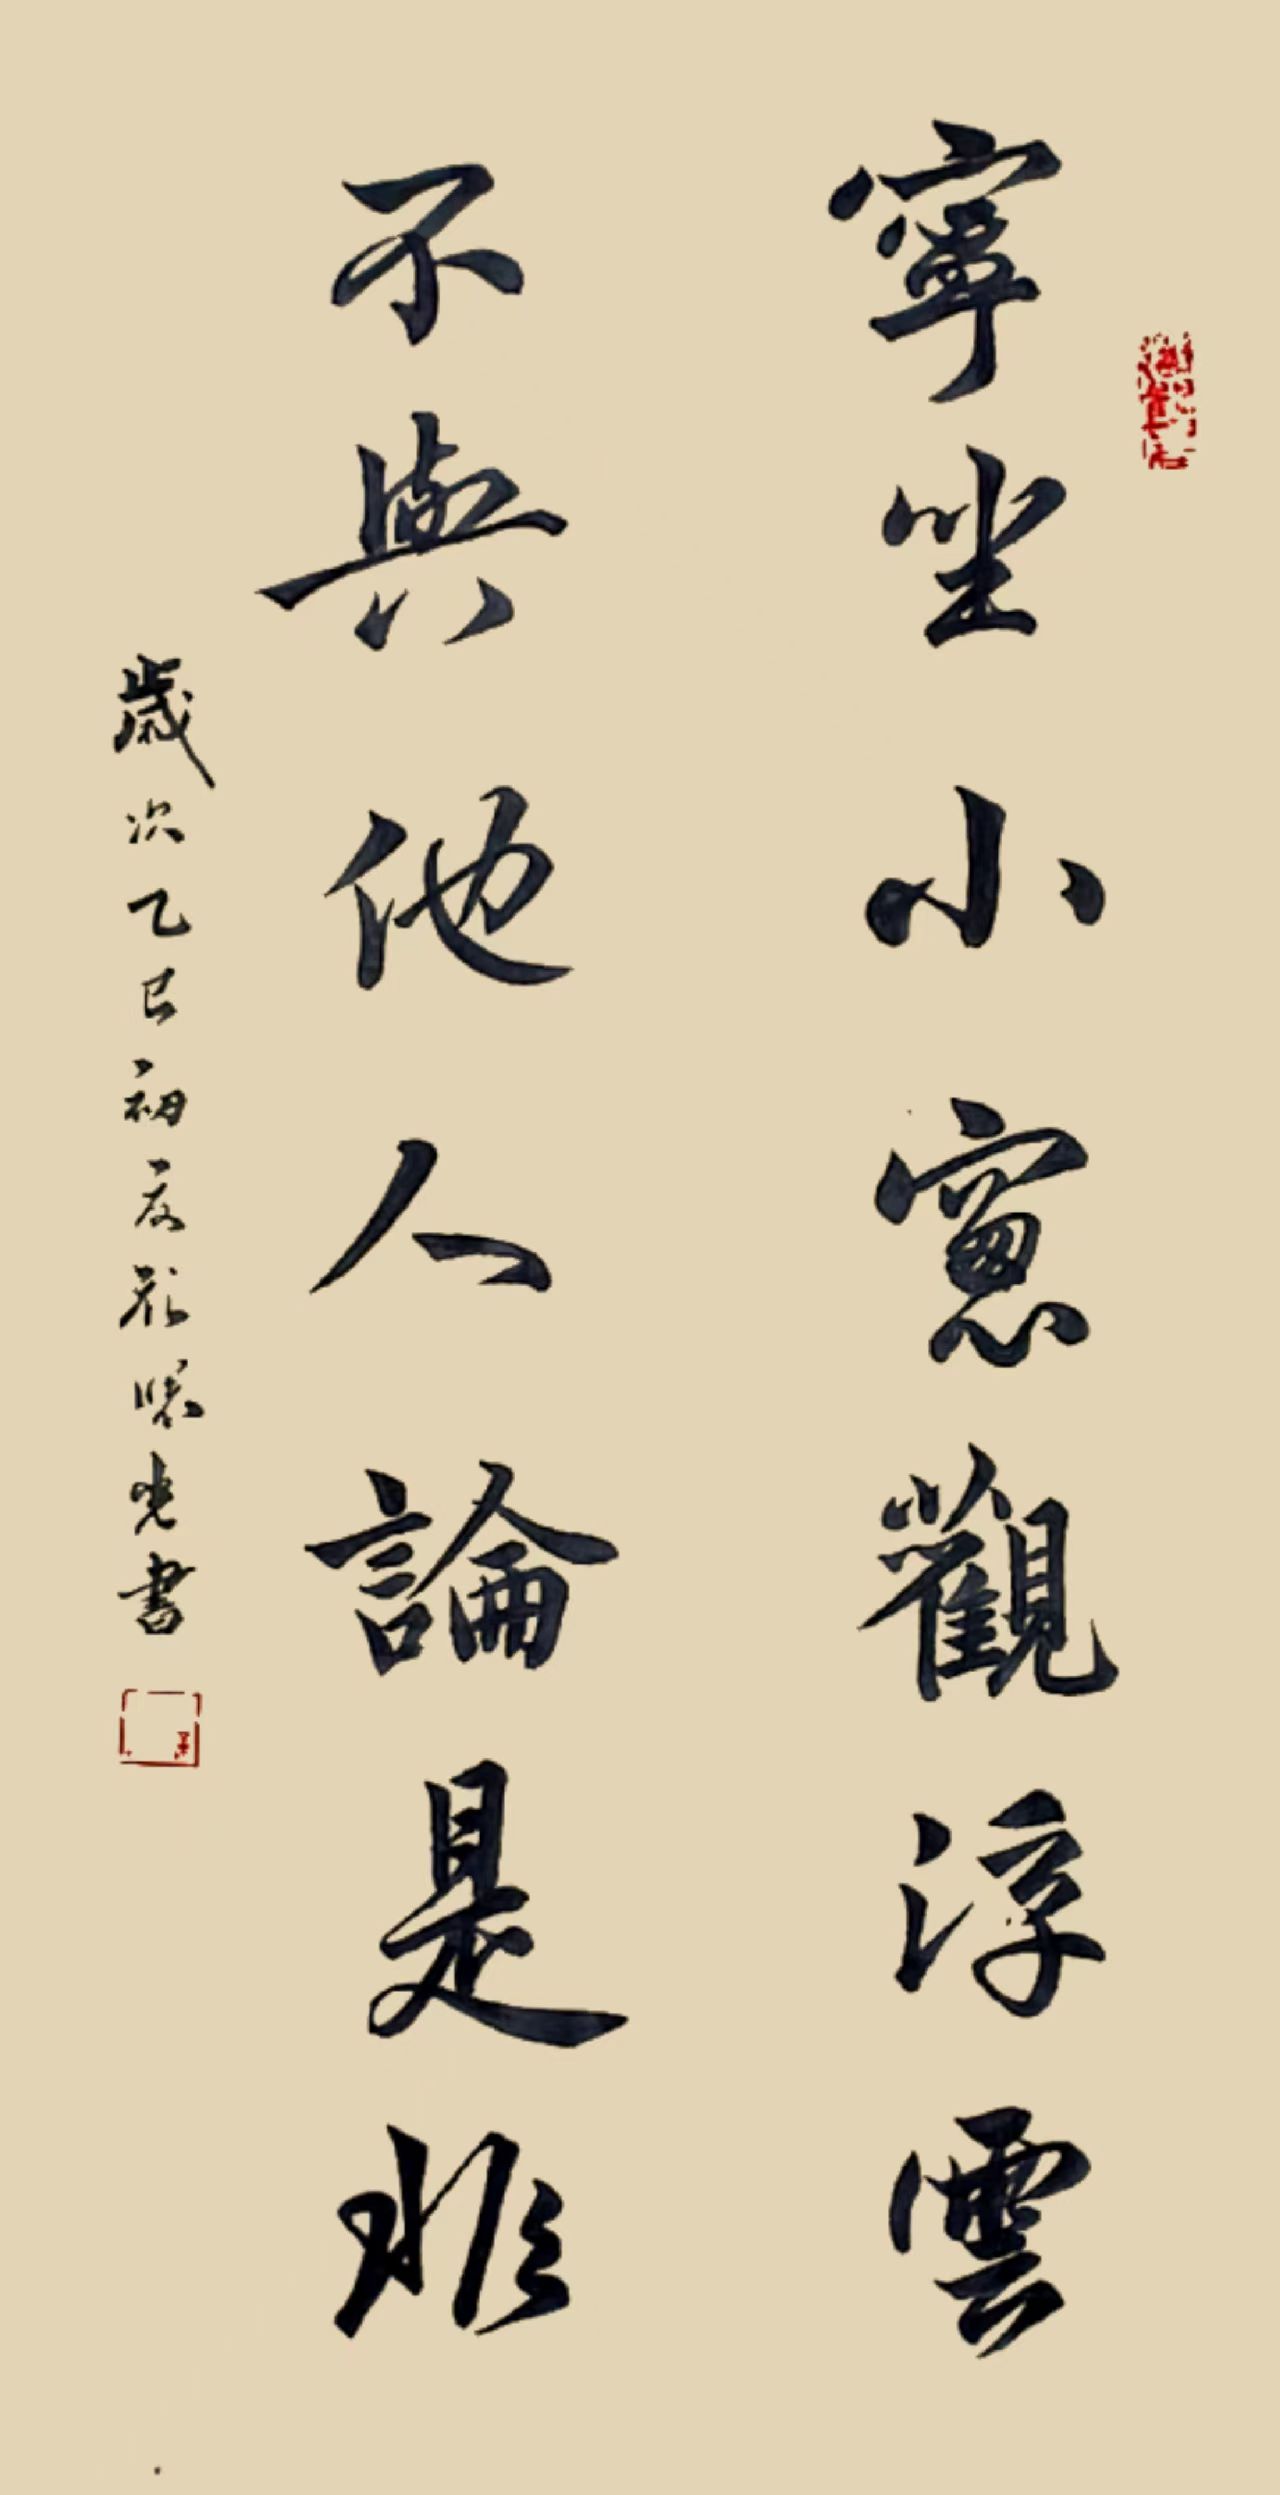 寧坐小窻觀浮雲
不與他人論是非
歲次乙巳初夏 光書